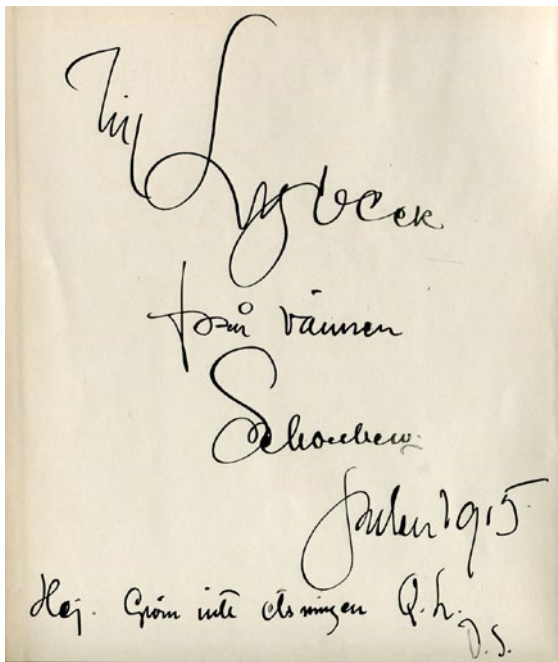 Till Lybeck
från vännen
Schonberg
Julen 1915
Hej. Glöm inte etsningen Q. L.
D. S.